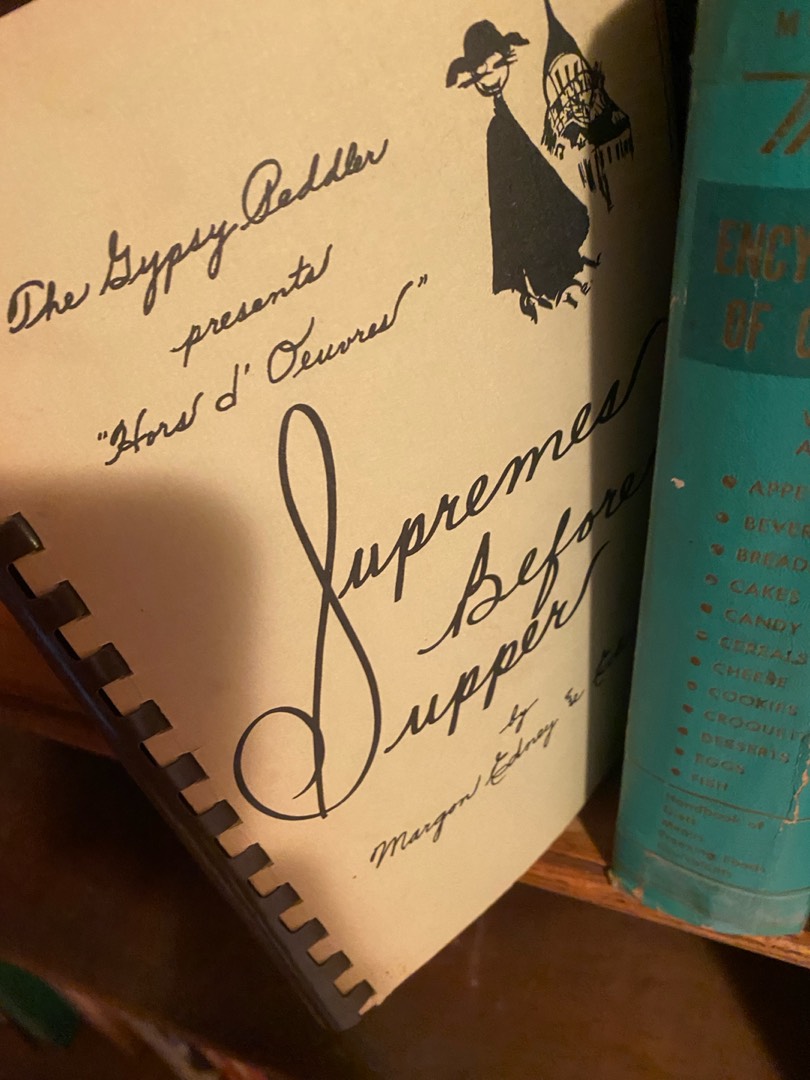 The Gypsy Peddler
presents
"Hors d' Oeuvres"
Supremes
Before
Supper
by
Margon Edney &
M
ENCY
OF C
• APPE
• BEVER
• BREAD
• CAKES
• CANDY
• CEREALS
• CHEESE
• COOKIES
• CROQUET
• DESSERTS
• EGGS
• FISH
Handbook of
Diet
Menus
Freezing Foods